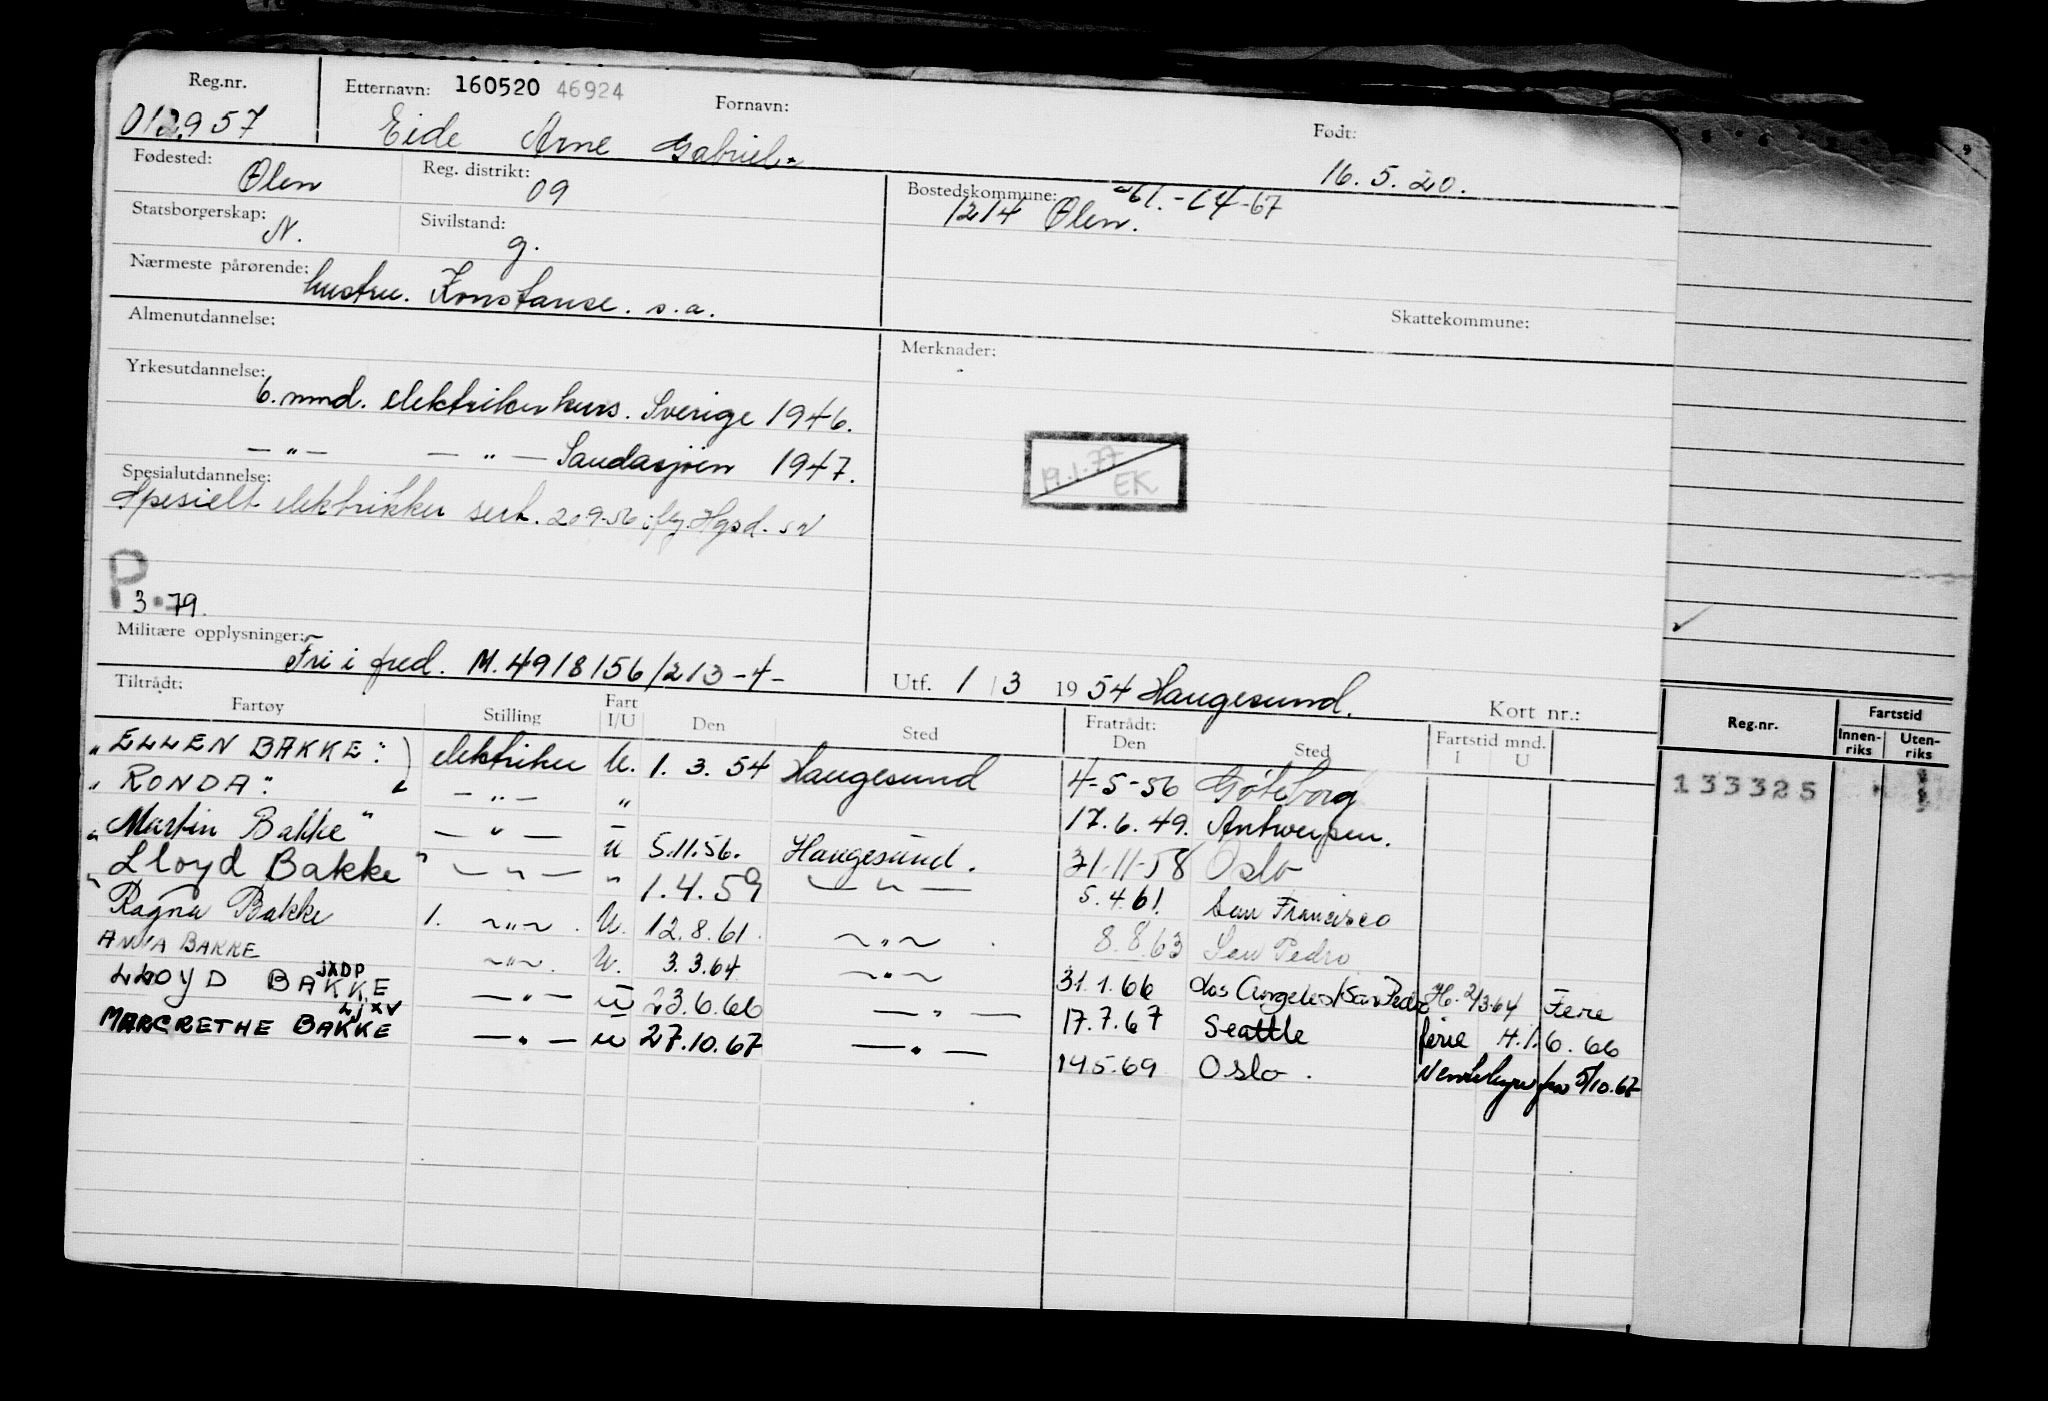 Reg.nr. Etternavn: 160520 46924 Fornavn: Født:
012957 Eide Arne Gabriel 16.5.20.
Fødested: Ølen Reg. distrikt: 09 Bostedskommune: 1214 Ølen.
Statsborgerskap: N. Sivilstand: g.
Nærmeste pårørende: hustru. Konstanse. s.a.
Skattekommune:
Almenutdannelse: Merknader:
Yrkesutdannelse: 6. mnd. elektrikerkurs. Sverige 1946.
— " — — " — Saudasjøen 1947.
19.1.77 EK
Spesialutdannelse:
Spesielt elektrikker sert. 20 9-56 Hgsd.
P 3.79.
Militære opplysninger: Fri i fred. M.49/8/56/213-4- Utf. 1 / 3 19 54 Haugesund.
Tiltrådt: Fratrådt: Kort nr.:
Fartøy Stilling Fart I/U Den Sted Den Sted Fartstid mnd. I U
"ELLEN BAKKE" elektriker U. 1. 3. 54 Haugesund 4-5-56 Göteborg
"RONDA" — " — " 17.6.49. Antwerpen.
"Martin Bakke" — " — u 5.11.56. Haugesund. 21-11-58 Oslo
"Lloyd Bakke" — " — " 1.4.59 — " — 5.4.61. San Francisco
Ragna Bakke 1. — " — U. 12.8.61. — " — 8.8.63 San Pedro
ANNA BAKKE — " — U. 3.3.64 — " — 31.1.66 Los Angeles/San Pedro H. 2/3 64 Ferie
LLOYD BAKKE JXDP — " — u 23.6.66 — " — 17.7.67 Seattle ferie H.1.6.66
MARGRETHE BAKKE LJXV — " — u 27.10.67 — " — 14.5.69 Oslo. Ventehyre fra 5/10.67
Reg.nr. Fartstid
Innen-riks Uten-riks
133325